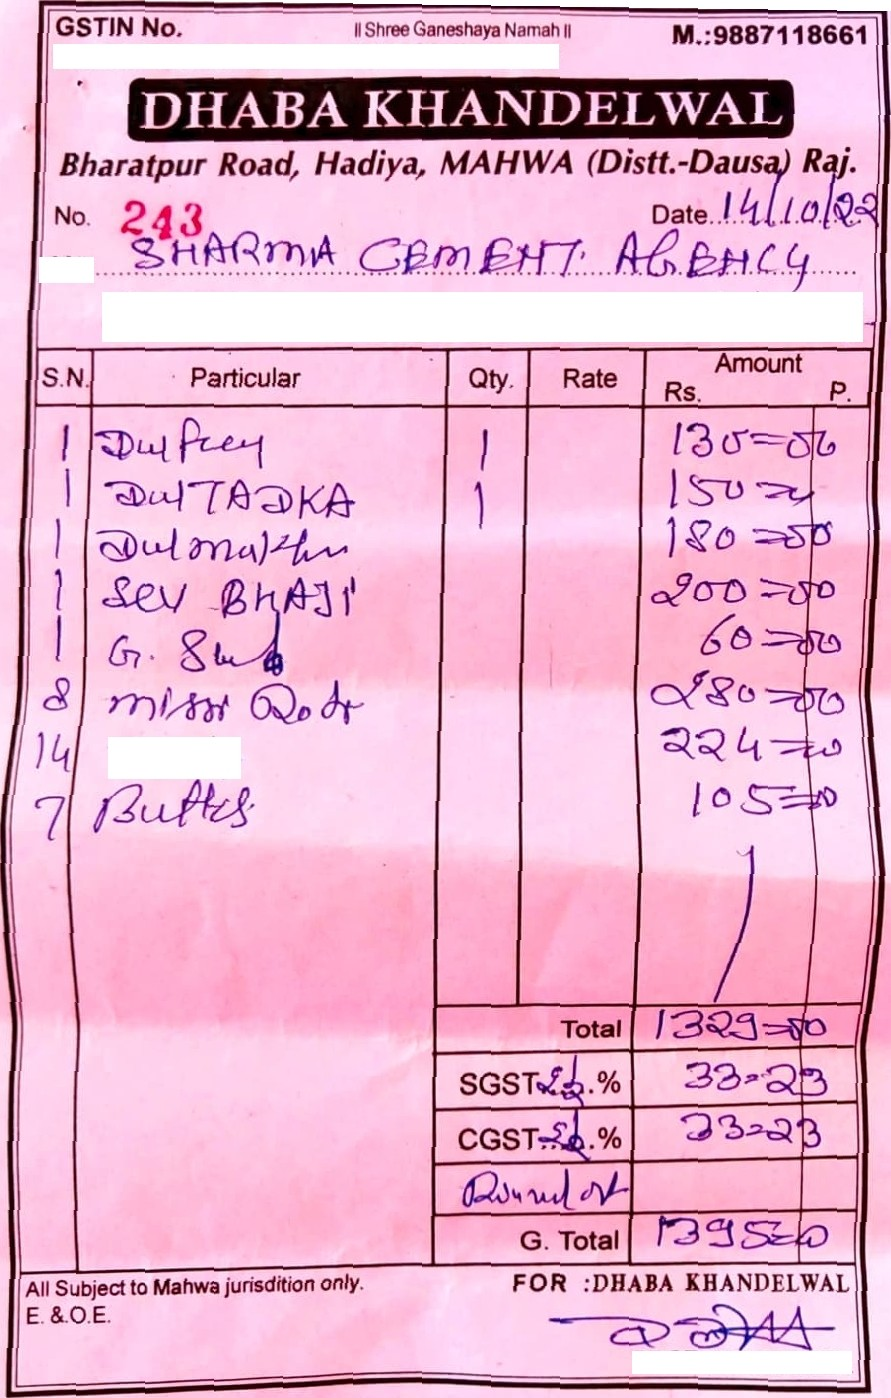 GSTIN No. || Shree Ganeshaya Namah || M.:9887118661
DHABA KHANDELWAL
Bharatpur Road, Hadiya, MAHWA (Distt.-Dausa) Raj.
No. 243 Date 14/10/22
SHARMA CEMENT AGENCY
S.N. Particular Qty. Rate Amount
Rs. P.
1 Dal frey 1 130=00
1 Dal TADKA 1 150=00
1 Dal makhn 180=00
1 Sev BHAJI 200=00
1 G. 60=00
8 missi Roti 280=00
14 224=00
7 Butter 105=00
Total 1329=00
SGST 2½.% 33=23
CGST 2½.% 33=23
Round of
G. Total 1395=00
All Subject to Mahwa jurisdition only. FOR :DHABA KHANDELWAL
E. &.O.E.